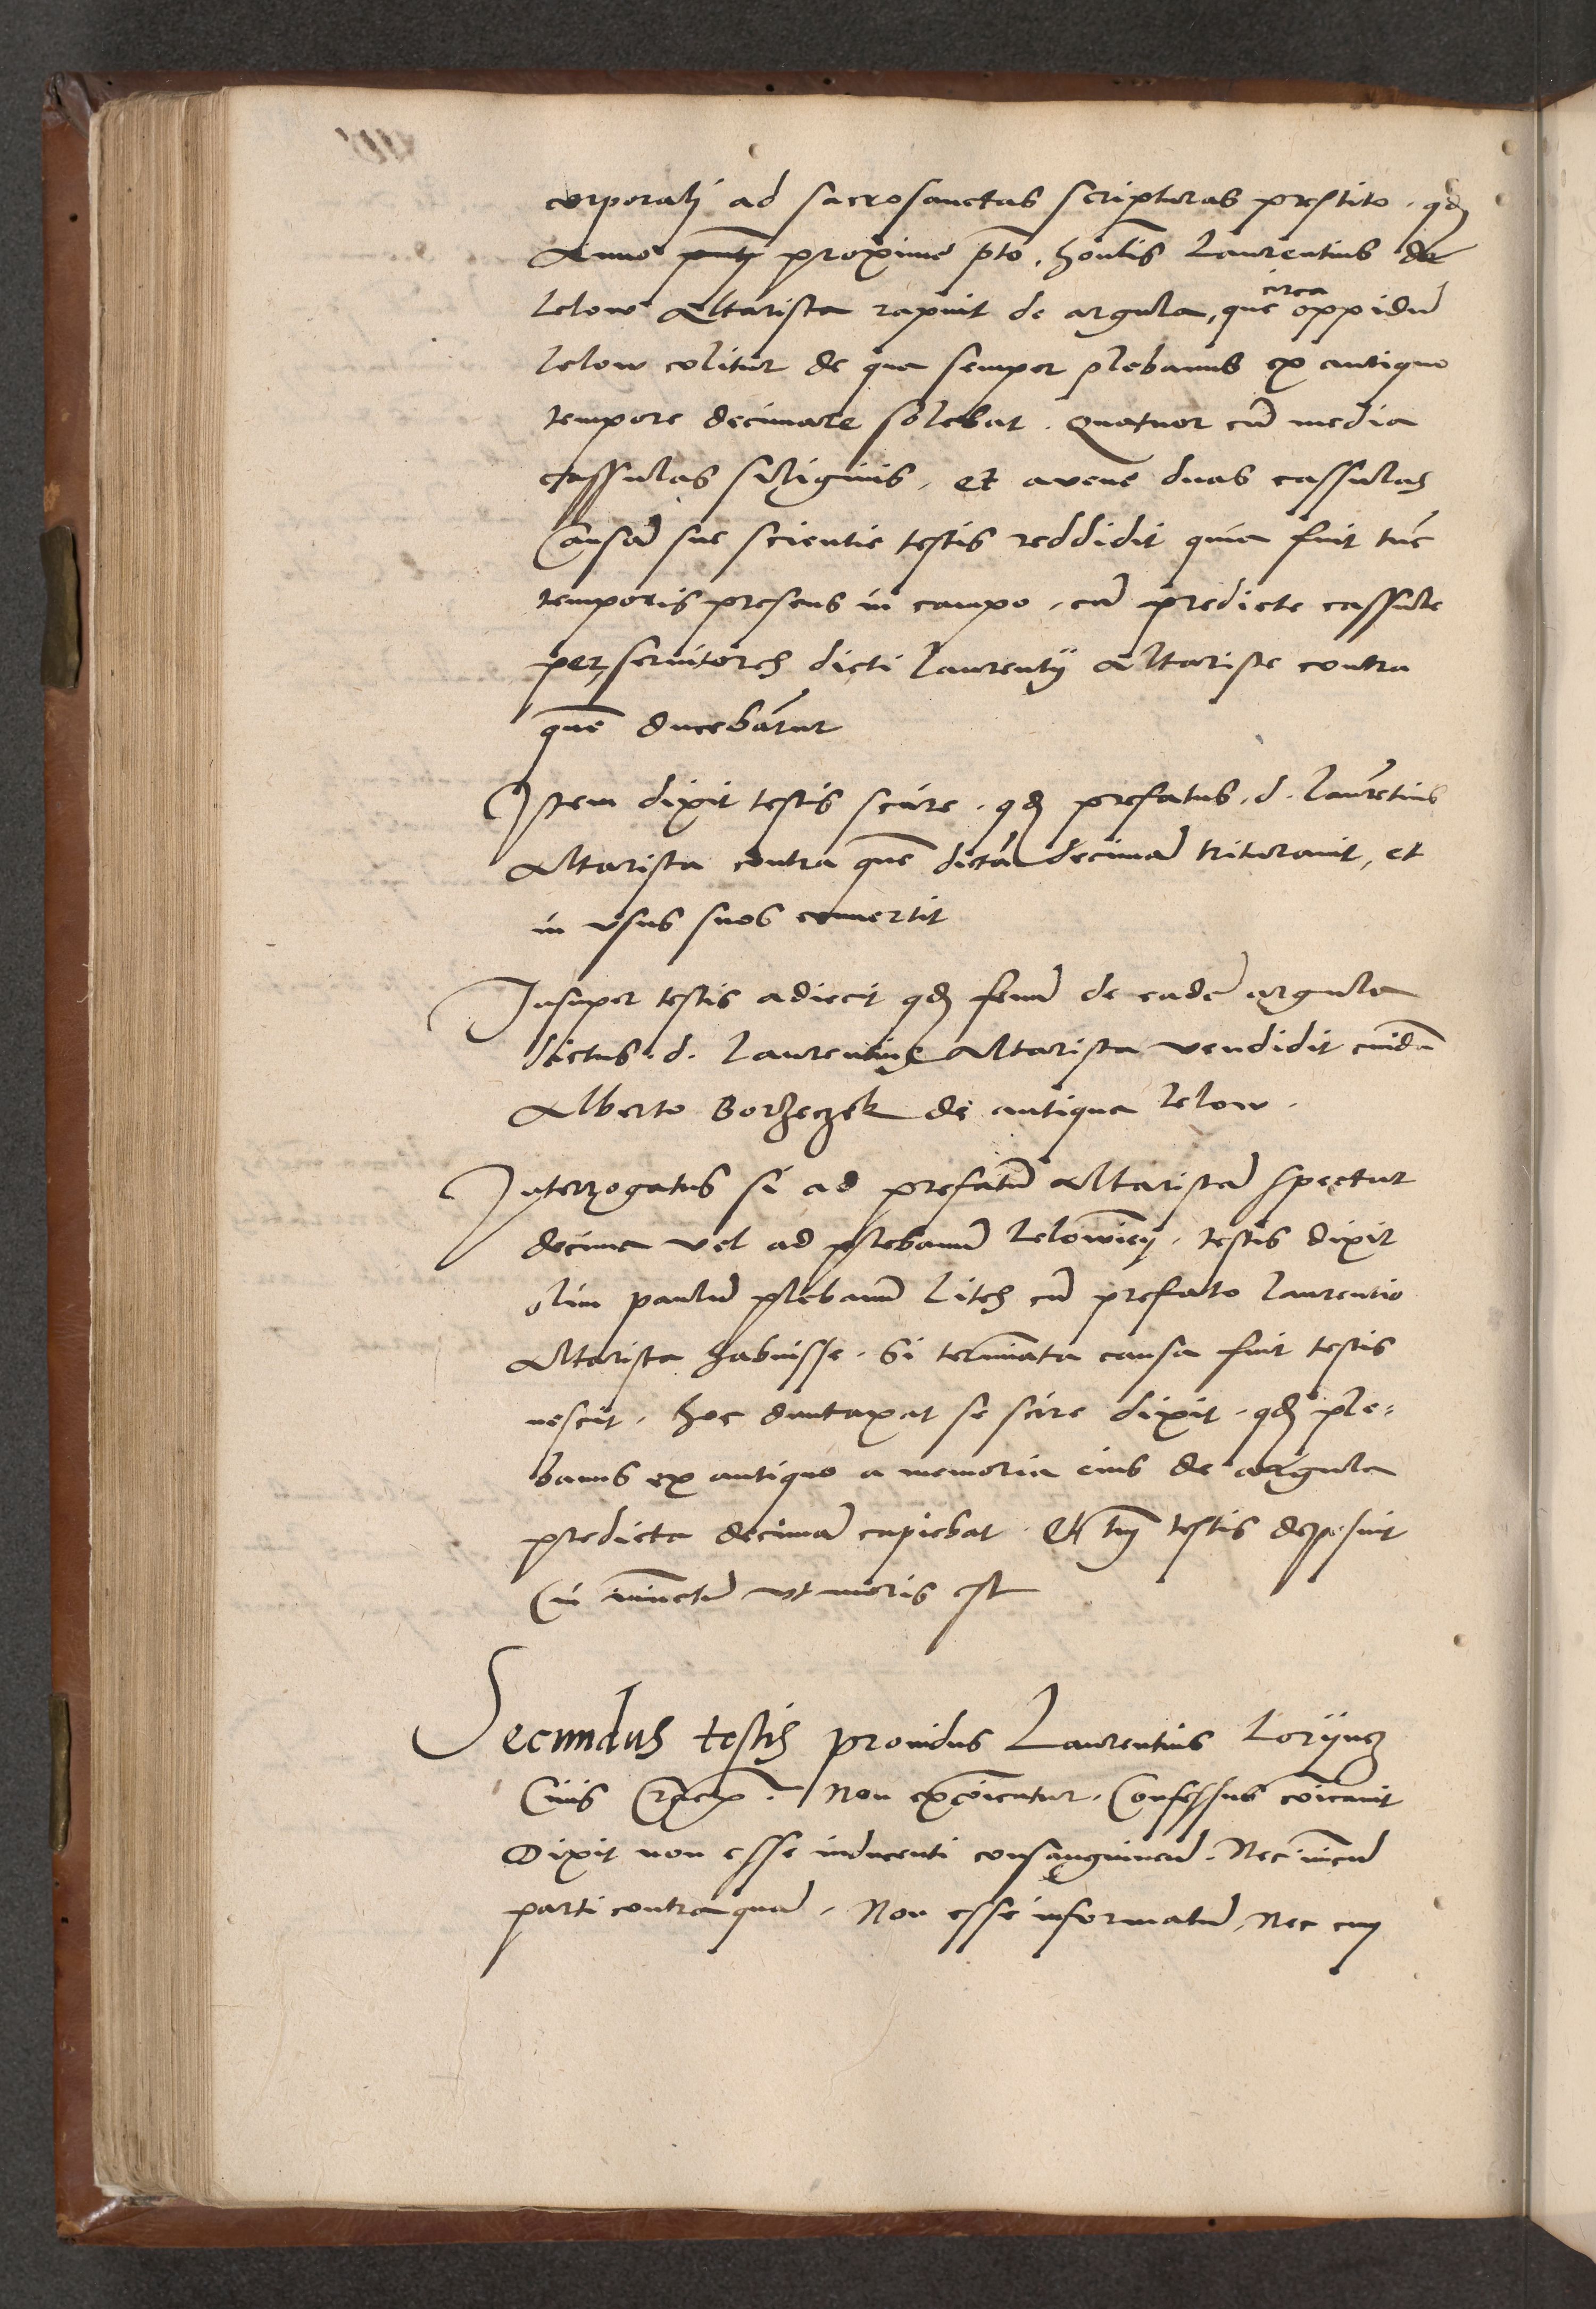 corporali ad sacrosanctas scripturas prestito . qđ
Anno proxime pto . honlis Laurentius de
Lelow Altarista rapuit de argula, que circa oppidū
Lelow colitur de qua semper plebanus ex antiquo
tempore decimare solebat . Quatuor cū media
cassulas siliginis, et avene duas cassulas
Causā sue scientie testis reddidit quia fuit tūc
temporis presens in campo, cū predicte cassule
per servitores dicti Laurentij Altariste contra
quē ducebātur
Item dixit testis scire . qđ prefatus . d . Laurētius
Altarista contra quē dictā decimā triturauit, et
in vsus suos conuertit
Insuper testis adiecit qđ fenū de eadē argula
dictus . d . Laurentius Altarista vendidit cuidā
Alberto Borzeczek de antiqua Lelow .
Interrogatus si ad prefatū Altaristā spectat
decima vel ad plebanū Lelowien̄ . testis dixit
olim paulū plebanū lites cū prefato Laurentio
Altarista habuisse . Si termīata causa fuit testis
nescit . hoc duntaxat se scire dixit . qđ ple=
banus ex antiquo a memoria eius de argula
predicta decimā capiebat . Et tm̄ testis deposuit
Cui iniunctū vt moris est
Secundus testis prouidus Laurentius Loryncz
Ciuis Non excōicatur . Confessus cōicauit
Dixit non esse inducenti consanguineū . Nec inimicū
parti contra quā . Non esse informatū, Nec